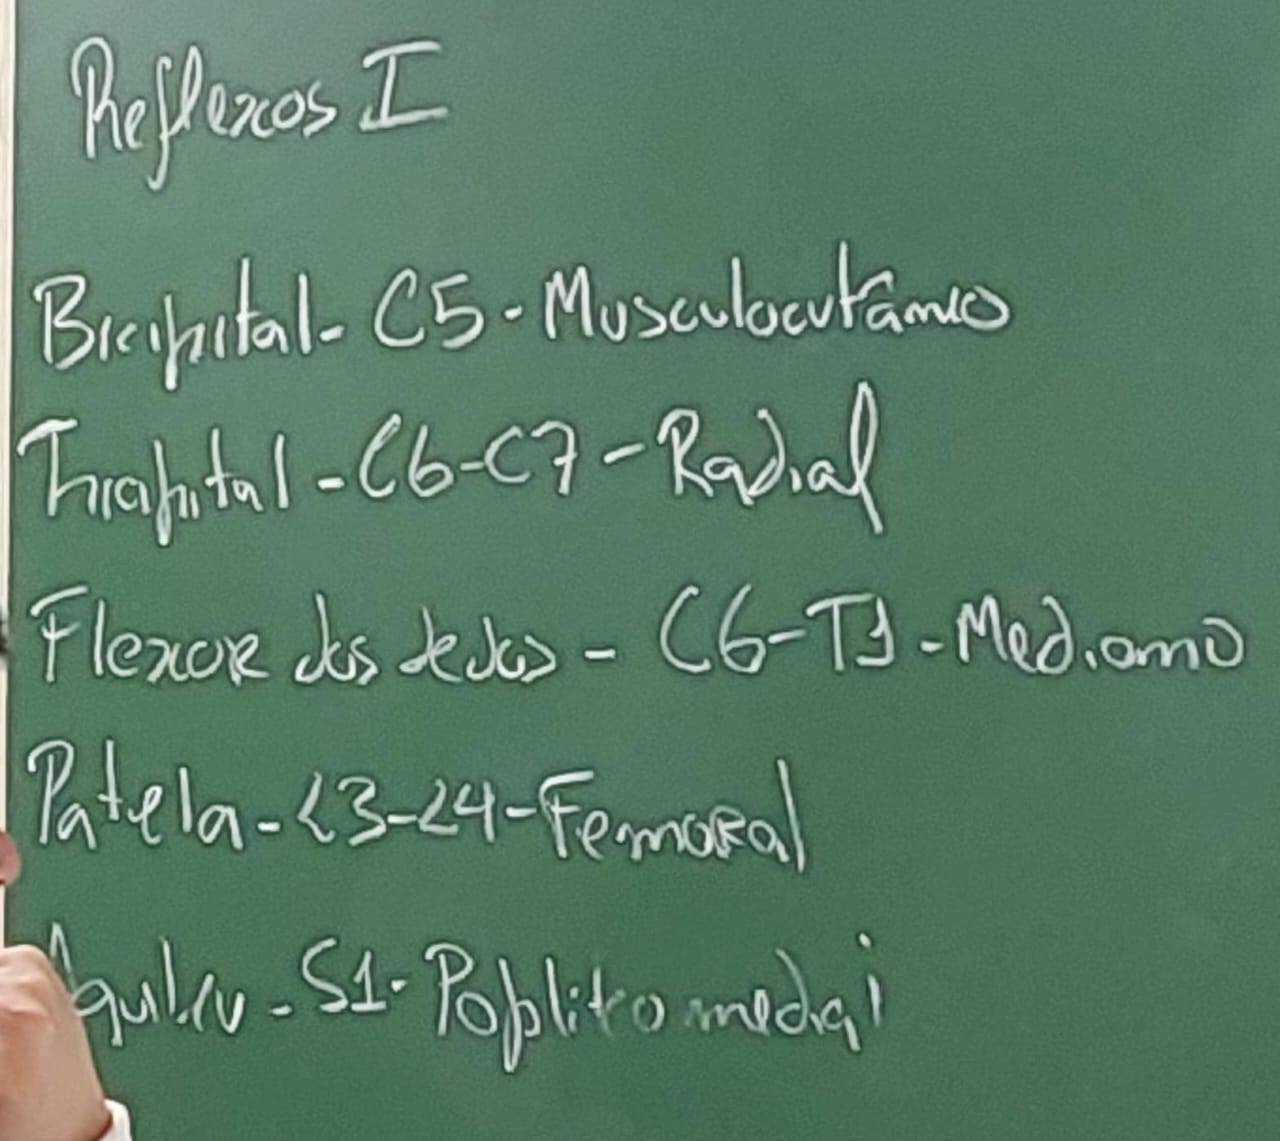 Reflexos I
Bicipital - C5 - Musculocutâneo
Tricipital - C6-C7 - Radial
Flexor dos dedos - C6-T1 - Mediano
Patela - L3-L4 - Femoral
Aquileu - S1 - Poplíteo medial